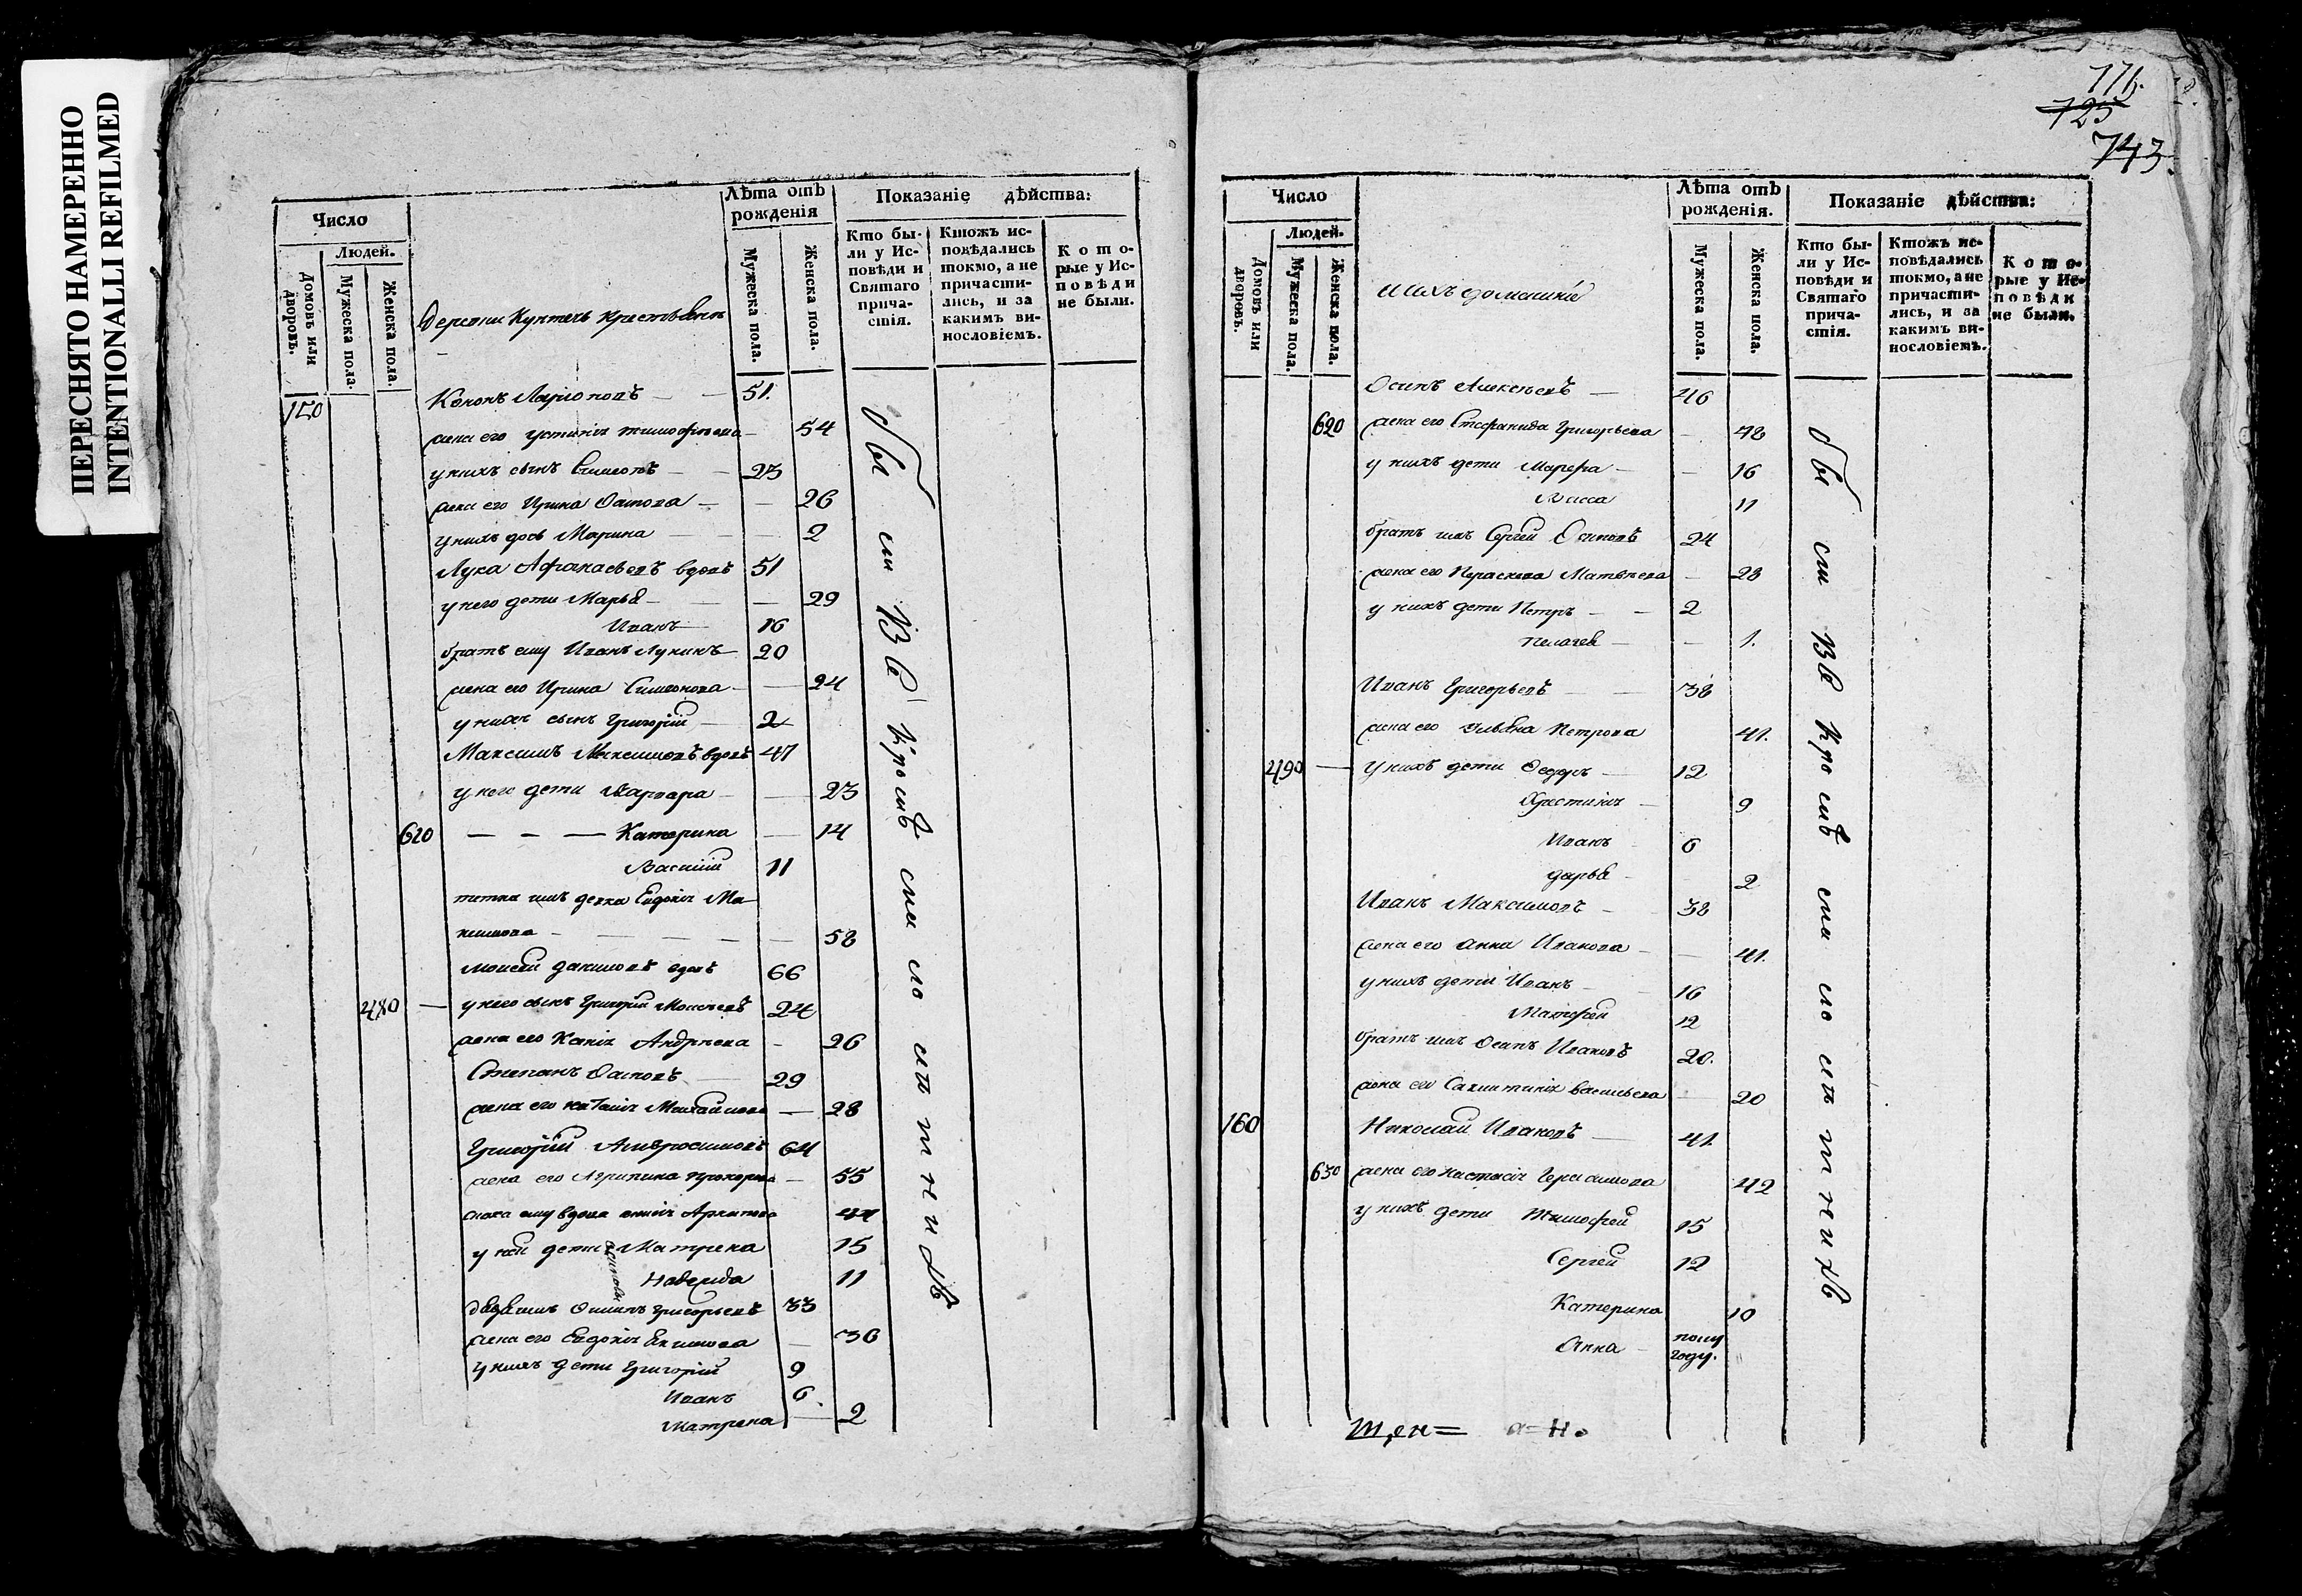 ПЕРЕСНЯТО НАМЕРЕННО
INTENTIONALLI REFILMED
Число
Людей.
Домовъ или дворовъ.
Мужеска пола.
Женска пола.
деревни крестьяне
Лѣта отъ рожденія
Мужеска пола.
Женска пола.
Показаніе дѣйства:
Кто бы-
ли у Ис-
повѣди и
Святаго
прича-
стія.
Ктожъ ис-
повѣдались
токмо, а не
причасти-
лись, и за
какимъ ви-
нословіемъ.
Кото-
рые у Ис-
повѣди
не были.
150 Кононъ Ларіоновъ 51.
жена его Устинія Тимофѣева 54
у нихъ сынъ Симеонъ 23
жена его Ирина 26
у нихъ дочь Марина 2
Лука Афанасьевъ вдовъ 51
у него дети Марья 29
Иванъ 16
братъ ему Иванъ Лукинъ 20
жена его Ирина Симеонова 24
у нихъ сынъ Григорій 2
Максимъ Максимовъ вдовъ 47
у него дети Варвара 23
610 Катерина 14
Василій 11
тетка имъ девка Евдокія Ма-
кимова 58
Моисей вдовъ 66
480 у него сынъ Григорій Моисеевъ 24
жена его Андреева 26
Степанъ 29
жена его Михайлова 28
Григорій Амвросимовъ 64
жена его Агрипина Прохорова 55
ему вдова Архипова 44
у ней дети Матрена 15
Надежда 11
Григорьевъ 33
жена его Евдокія 36
у нихъ дети Григорій 9
Иванъ 6.
Матрена 2
были въ кромѣ
776.
725
743
Число
Людей.
Домовъ или дворовъ.
Мужеска пола.
Женска пола.
и ихъ домашніе
Лѣта отъ рожденія.
Мужеска пола.
Женска пола.
Показаніе дѣйства:
Кто бы-
ли у Ис-
повѣди и
Святаго
прича-
стія.
Ктожъ ис-
повѣдались
токмо, а не
причасти-
лись, и за
какимъ ви-
нословіемъ.
Кото-
рые у Ис-
повѣди
не были.
Осипъ Алексѣевъ 46
620 жена его Стефанида Григорьева 48
у нихъ дети Марфа 16
Васса 11
братъ имъ Сергей Осиповъ 24
жена его Параскева Матвѣева 28
у нихъ дети Петръ 2
Пелагея 1.
Иванъ Григорьевъ 38
жена его Ульяна Петрова 41.
490 у нихъ дети Федоръ 12
Христинія 9
Иванъ 6
Дарья 2
Иванъ Максимовъ 38
жена его Анна Иванова 41.
у нихъ дети Иванъ 16
Матфей 12
братъ имъ Осипъ Ивановъ 20.
жена его Васильева 20
160 Николай Ивановъ 41.
630 жена его Настасія Герасимова 42
у нихъ дети Тимофей 15
Сергей 12
Катерина 10
Анна полу году.
были въ кромѣ